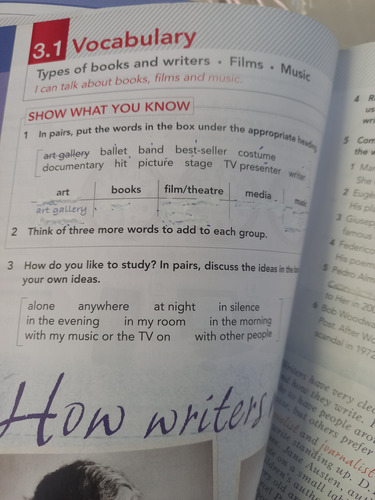 3.1 Vocabulary
Types of books and writers • Films • Music
I can talk about books, films and music.
SHOW WHAT YOU KNOW
1 In pairs, put the words in the box under the appropriate heading.
art gallery ballet band best-seller costume
documentary hit picture stage TV presenter writer
art books film/theatre media music
art gallery
2 Think of three more words to add to each group.
3 How do you like to study? In pairs, discuss the ideas in the
your own ideas.
alone anywhere at night in silence
in the evening in my room in the morning
with my music or the TV on with other people
How writers
4
5 Com
the w
1 Mar
She
2 Eugè
His pl
3 Giusepp
famous
4 Federico
His poem
5 Pedro Alm
to Her in 200
6 Bob Woodwa
Post. After Wo
scandal in 1972
have very clea
how they write.
to have people arou
but others prefer
and journalist
standing up. D
Jane Austen, aut
on a small tab